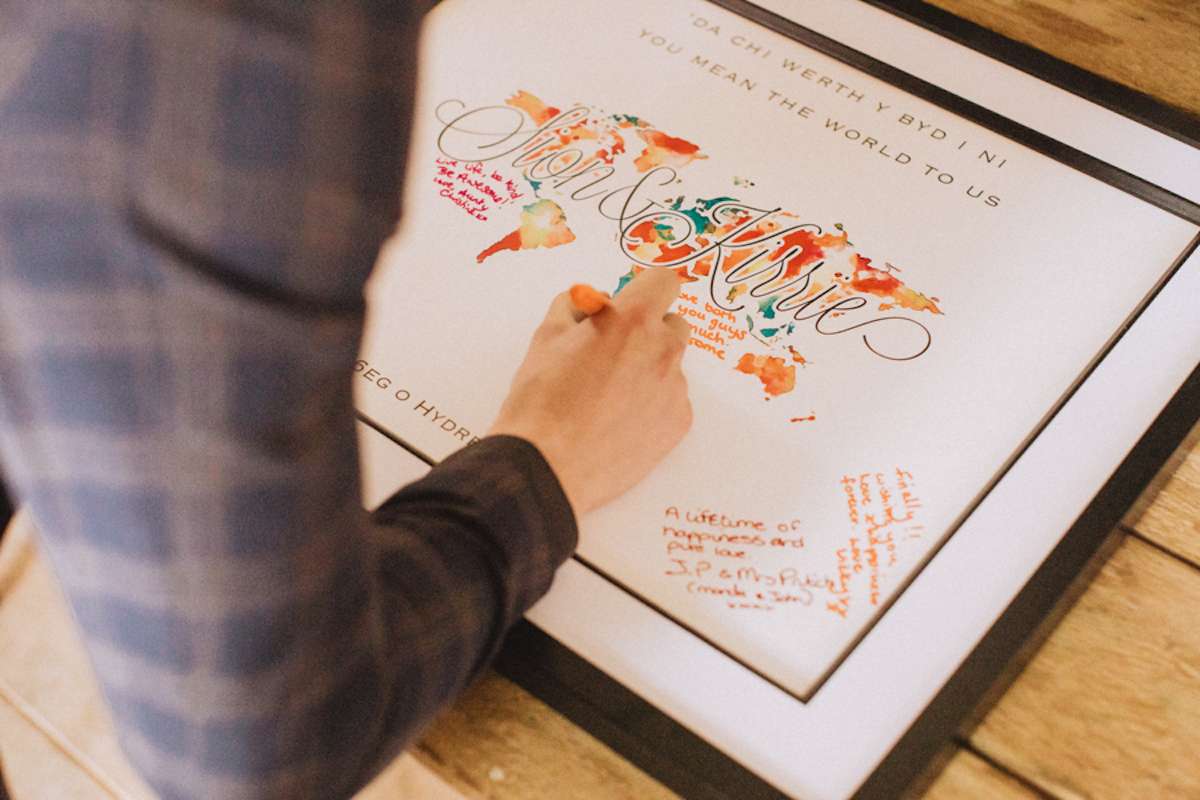 'DA CHI WERTH Y BYD I NI
YOU MEAN THE WORLD TO US
Sion & Kirrie
Live life, be kind
Be Awesome!
Love, Aunty
love both
you guys
much
some
SEG O HYDRE
A lifetime of
happiness and
pure love
J.P & Mrs
(manda & John)
xxxx
Finally!!
wishing you
love & happiness
forever. Love
Vicky xx